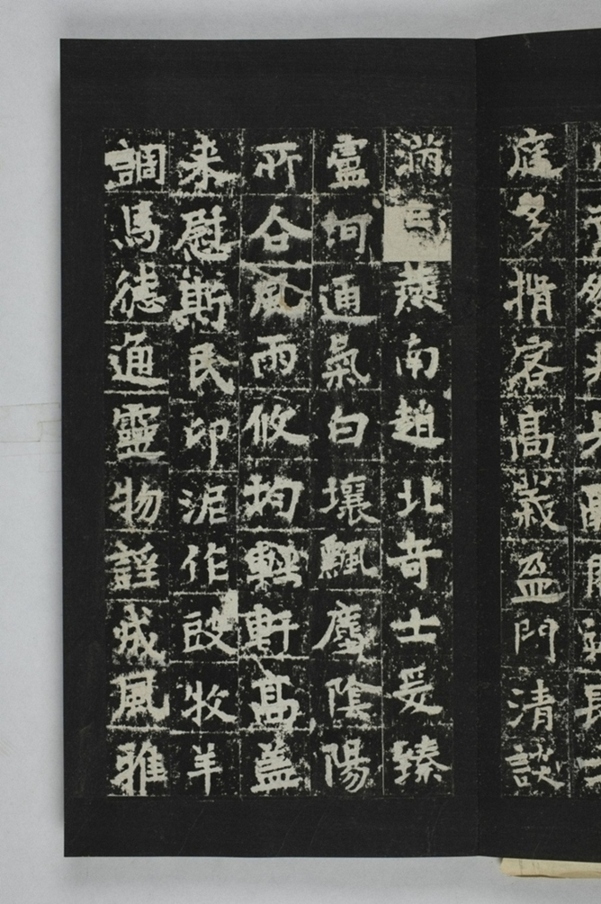 庭多揖客高義盈門清談
滿燕南趙北奇士爰臻
靈河通氣白壤飄塵陰陽
所合風雨攸均輕軒髙蓋
来慰斯民印泥作啟牧羊
調馬德通靈物謡成風雅